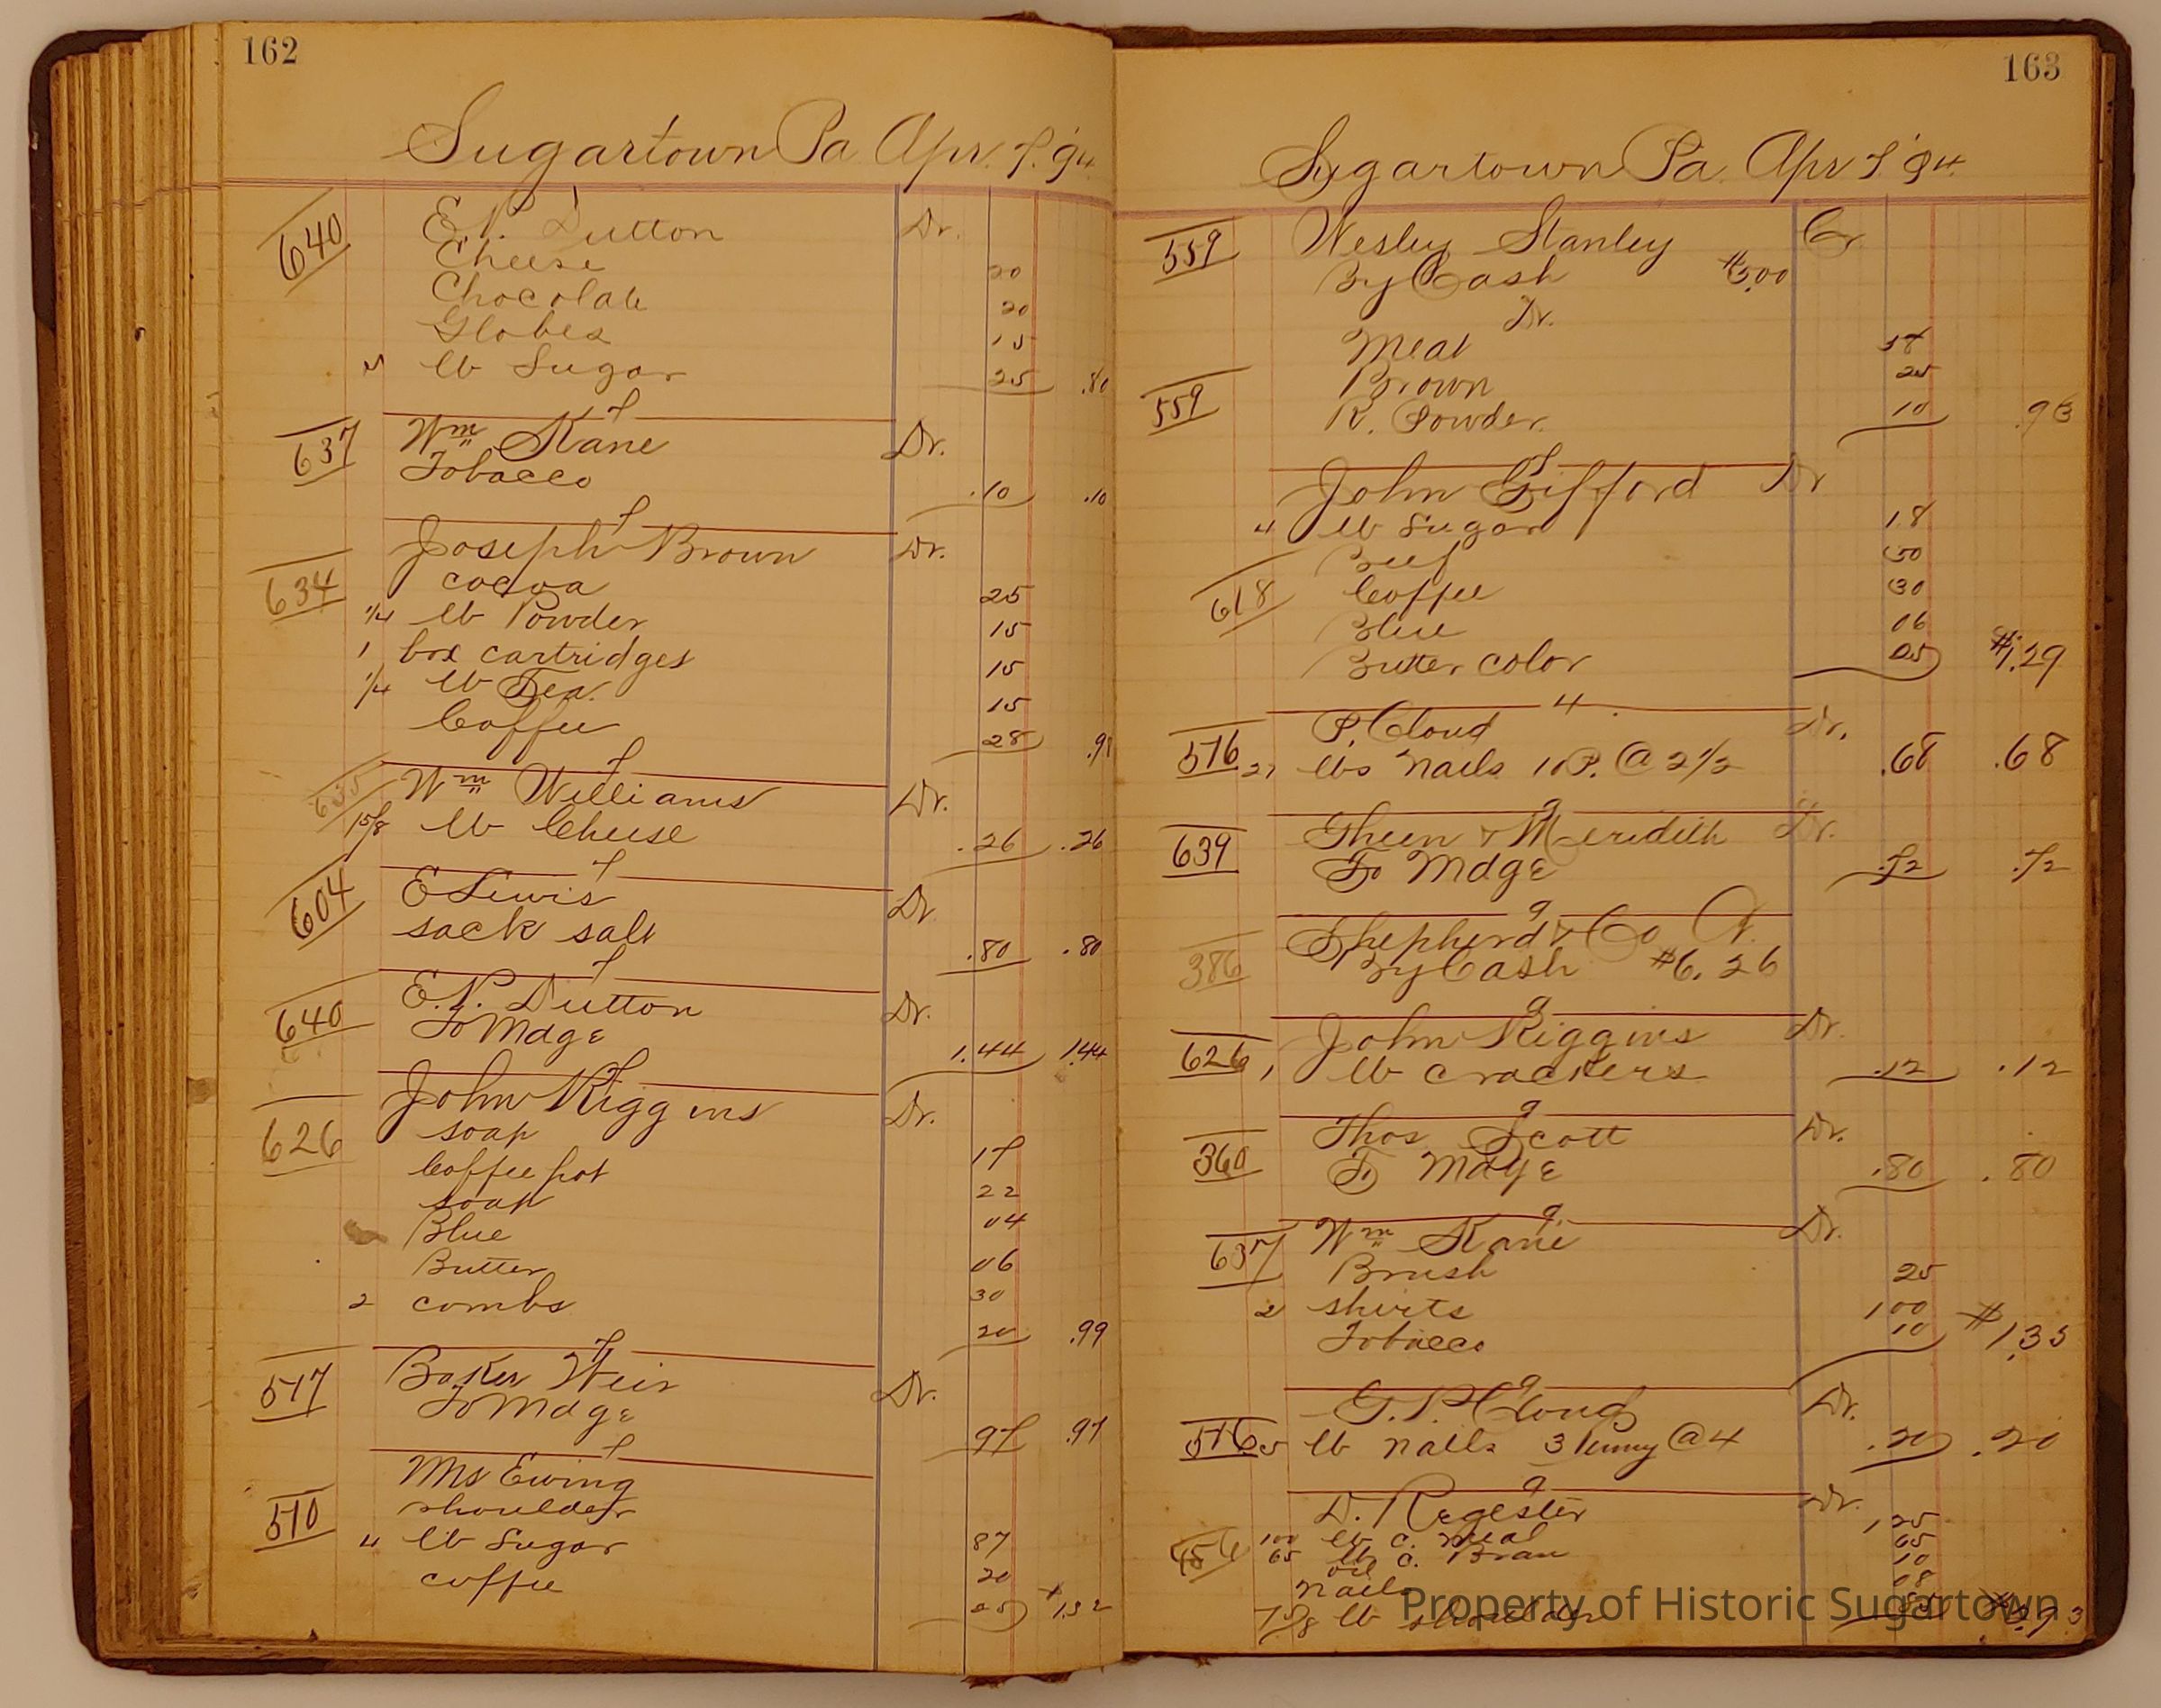 162
Sugartown Pa Apr. 7. '94.
640 E. P. Dutton Dr.
Cheese 20
Chocolate 20
Globes 15
5 lb Sugar 25 .80
7
637 Wm Kane Dr.
Tobacco .10 .10
7
Joseph Brown Dr.
634 cocoa 25
1/4 lb Powder 15
1 box cartridges 15
1/4 lb Tea 15
Coffee 28 .98
7
635 Wm Williams Dr.
15/8 lb Cheese .26 .26
7
604 E Lewis Dr.
sack salt .80 .80
7
640 E. P. Dutton Dr.
To Mdge 1.44 1.44
7
John Riggins Dr.
626 soap 17
Coffee pot 22
soap 04
Blue 06
Butter 30
2 combs 20 .99
7
517 Baker Weir Dr.
To Mdge 97 .97
7
Mrs Ewing
510 shoulder 87
4 lb Sugar 20
coffee 25 $1.32
163
Sugartown Pa. Apr 7. '94.
559 Wesley Stanley Cr
By Cash $5.00
Dr.
Meat 58
Brown 25
559 R. Powder. 10 .93
7
John Gifford Dr
4 lb Sugar 18
Beef 50
618 Coffee 30
Blue 06
Butter color 25 $1.29
4
576 P. Cloud Dr.
27 lbs nails 10 P. @ 2 1/2 .68 .68
9
639 Gheen & Meredith Dr.
To Mdge .72 .72
9
Shepherd & Co
386 By Cash $6.26
9
John Riggins Dr.
626 1 lb crackers .12 .12
9
Thos Scott Dr.
360 To Mdge .80 .80
9.
637 Wm Kane Dr.
Brush 25
2 shirts 100
Tobacco 10 $1.35
9
G. P. Cloud Dr.
576 5 lb nails 3 Penny @ 4 .20 .20
9
D. Regester Dr.
100 lb c. meal 1 25
65 lb c. Bran 65
oil 10
nails 08
7 5/8 lb shoulder
Property of Historic Sugartown